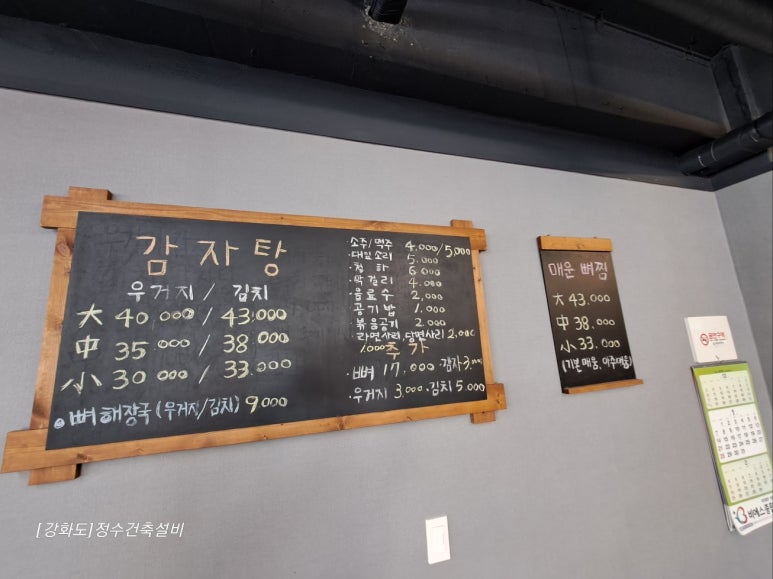 감자탕
우거지 / 김치
大 40 000 / 43.000
中 35 000 / 38 000
小 30 000 / 33.000
뼈해장국 (우거지/김치) 9000
·소주/맥주 4.000/5,000
·대잎소리 5.000
·청하 6.000
·막걸리 4.000
·음료수 2,000
·공기밥 1.000
·볶음공기 2.000
·라면사리, 당면사리 2,000
1.000 추가
·뼈 17.000 ·감자 3,000
·우거지 3.000 ·김치 5.000
매운 뼈찜
大 43.000
中 38.000
小 33.000
(기본매움, 아주매움)
[강화도]정수건축설비